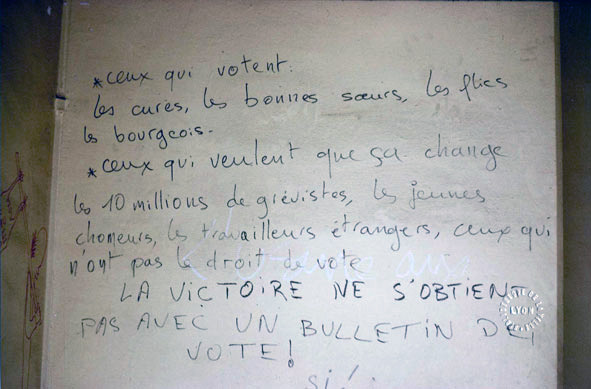 *ceux qui votent:
les curés, les bonnes sœurs, les flics
les bourgeois.
*ceux qui veulent que ça change
les 10 millions de grévistes, les jeunes
chomeurs, les travailleurs étrangers, ceux qui
n'ont pas le droit de vote
LA VICTOIRE NE S'OBTIENT
PAS AVEC UN BULLETIN DE
VOTE!
si!
LYON